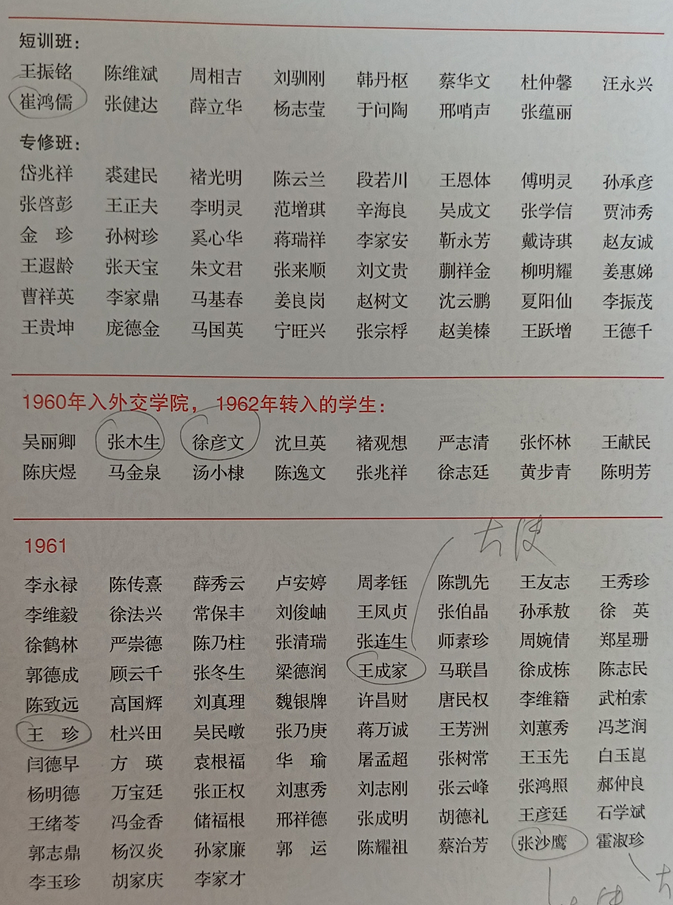 短训班：
王振铭 陈维斌 周相吉 刘驯刚 韩丹枢 蔡华文 杜仲馨 汪永兴
崔鸿儒 张健达 薛立华 杨志莹 于问陶 邢哨声 张蕴丽
专修班：
岱兆祥 裘建民 褚光明 陈云兰 段若川 王恩体 傅明灵 孙承彦
张啓彭 王正夫 李明灵 范增琪 辛海良 吴成文 张学信 贾沛秀
金 珍 孙树珍 奚心华 蒋瑞祥 李家安 靳永芳 戴诗琪 赵友诚
王遐龄 张天宝 朱文君 张来顺 刘文贵 蒯祥金 柳明耀 姜惠娣
曹祥英 李家鼎 马基春 姜良岗 赵树文 沈云鹏 夏阳仙 李振茂
王贵坤 庞德金 马国英 宁旺兴 张宗桴 赵美榛 王跃增 王德千
1960年入外交学院，1962年转入的学生：
吴丽卿 张木生 徐彦文 沈旦英 褚观想 严志清 张怀林 王献民
陈庆煜 马金泉 汤小棣 陈逸文 张兆祥 徐志廷 黄步青 陈明芳
大使
1961
李永禄 陈传熹 薛秀云 卢安婷 周孝钰 陈凯先 王友志 王秀珍
李维毅 徐法兴 常保丰 刘俊岫 王凤贞 张伯晶 孙承敖 徐 英
徐鹤林 严崇德 陈乃柱 张清瑞 张连生 师素珍 周婉倩 郑星珊
郭德成 顾云千 张冬生 梁德润 王成家 马联昌 徐成栋 陈志民
陈致远 高国辉 刘真理 魏银牌 许昌财 唐民权 李维籍 武柏索
王 珍 杜兴田 吴民暾 张乃庚 蒋万诚 王芳洲 刘蕙秀 冯芝润
闫德早 方 瑛 袁根福 华 瑜 屠孟超 张树常 王玉先 白玉崑
杨明德 万宝廷 张正权 刘惠秀 刘志刚 张云峰 张鸿照 郝仲良
王绪苓 冯金香 储福根 邢祥德 张成明 胡德礼 王彦廷 石学斌
郭志鼎 杨汉炎 孙家廉 郭 运 陈耀祖 蔡治芳 张沙鹰 霍淑珍
李玉珍 胡家庆 李家才